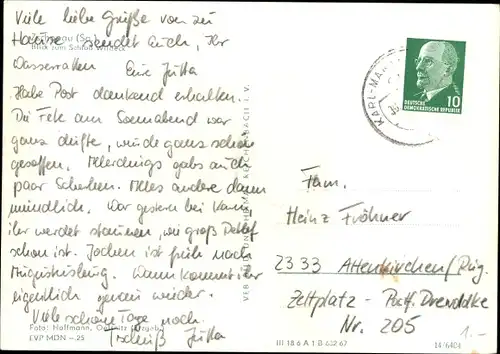 Viele liebe Grüße von zu
Hause sendet Euch, Ihr
Wasserratten Eure Jutta
Blick zum Schloß
Habe Post dankend erhalten.
Die Fete am Sonnabend war
ganz dufte, wurde ganz schön
gesoffen. Allerdings gabs auch
paar Scherben. Alles andere dann
mündlich. War gestern bei Karin
ihr werdet staunen, wie groß Detlef
schon ist. Jochen ist früh nach
Wann kommt ihr
eigentlich genau wieder.
Viele schöne Tage noch.
Tschüß Jutta
Foto: Hoffmann, Oelsnitz (Erzgeb.)
EVP MDN —.25
VEB BILD UND HEIMAT REICHENBACH I. V.
KARL-MARX
DEUTSCHE
DEMOKRATISCHE REPUBLIK
10
Fam.
Heinz Fröhner
2333 Altenkirchen/Rüg.
Zeltplatz - Postf. Drewoldke
Nr. 205
III 18 6 A 1 B 632 67
14/6404
1.-